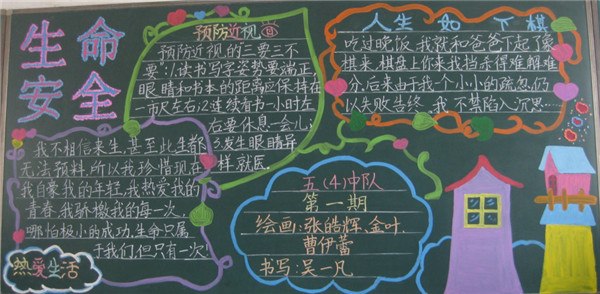 生命
安全
预防近视
预防近视的三要三不
要:1.读书写字姿势要端正
眼睛和书本的距离应保持在
一市尺左右;2.连续看书一小时左
右要休息一会儿;
3.发生眼睛异
样就医。
我不相信来生,甚至此生都
无法预料,所以我珍惜现在
我自豪我的年轻,我热爱我的
青春,我骄傲我的每一次,
哪怕极小的成功,生命只属
于我们但只有一次!
热爱生活
人生如下棋
吃过晚饭,我就和爸爸下起了象
棋来,棋盘上你来我挡杀得难解难
分,后来由于我一个小小的疏忽,仍
以失败告终,我不禁陷入沉思……
五(4)中队
第一期
绘画:张皓辉,金叶
曹伊蕾
书写:吴一凡